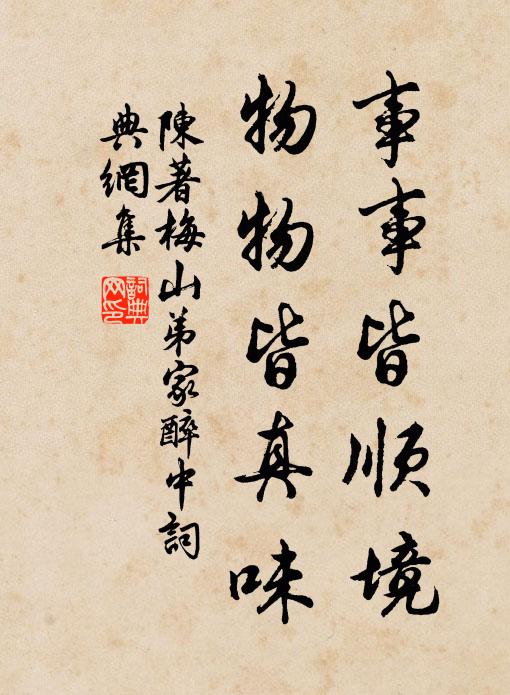 事事皆順境
物物皆真味
陳著梅山弟家醉中詞
典網集
詞典
网印